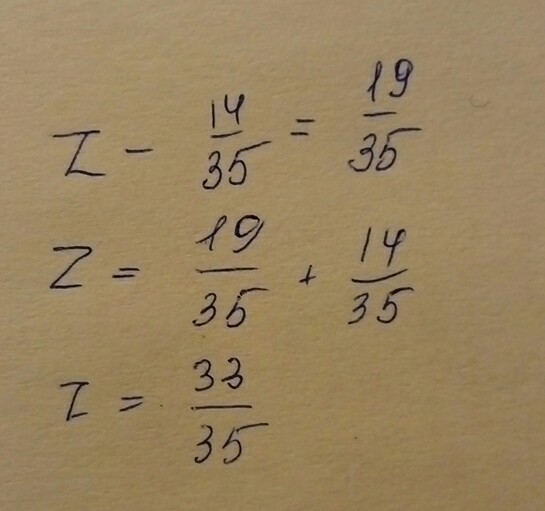 Z - 14/35 = 19/35
Z = 19/35 + 14/35
Z = 33/35